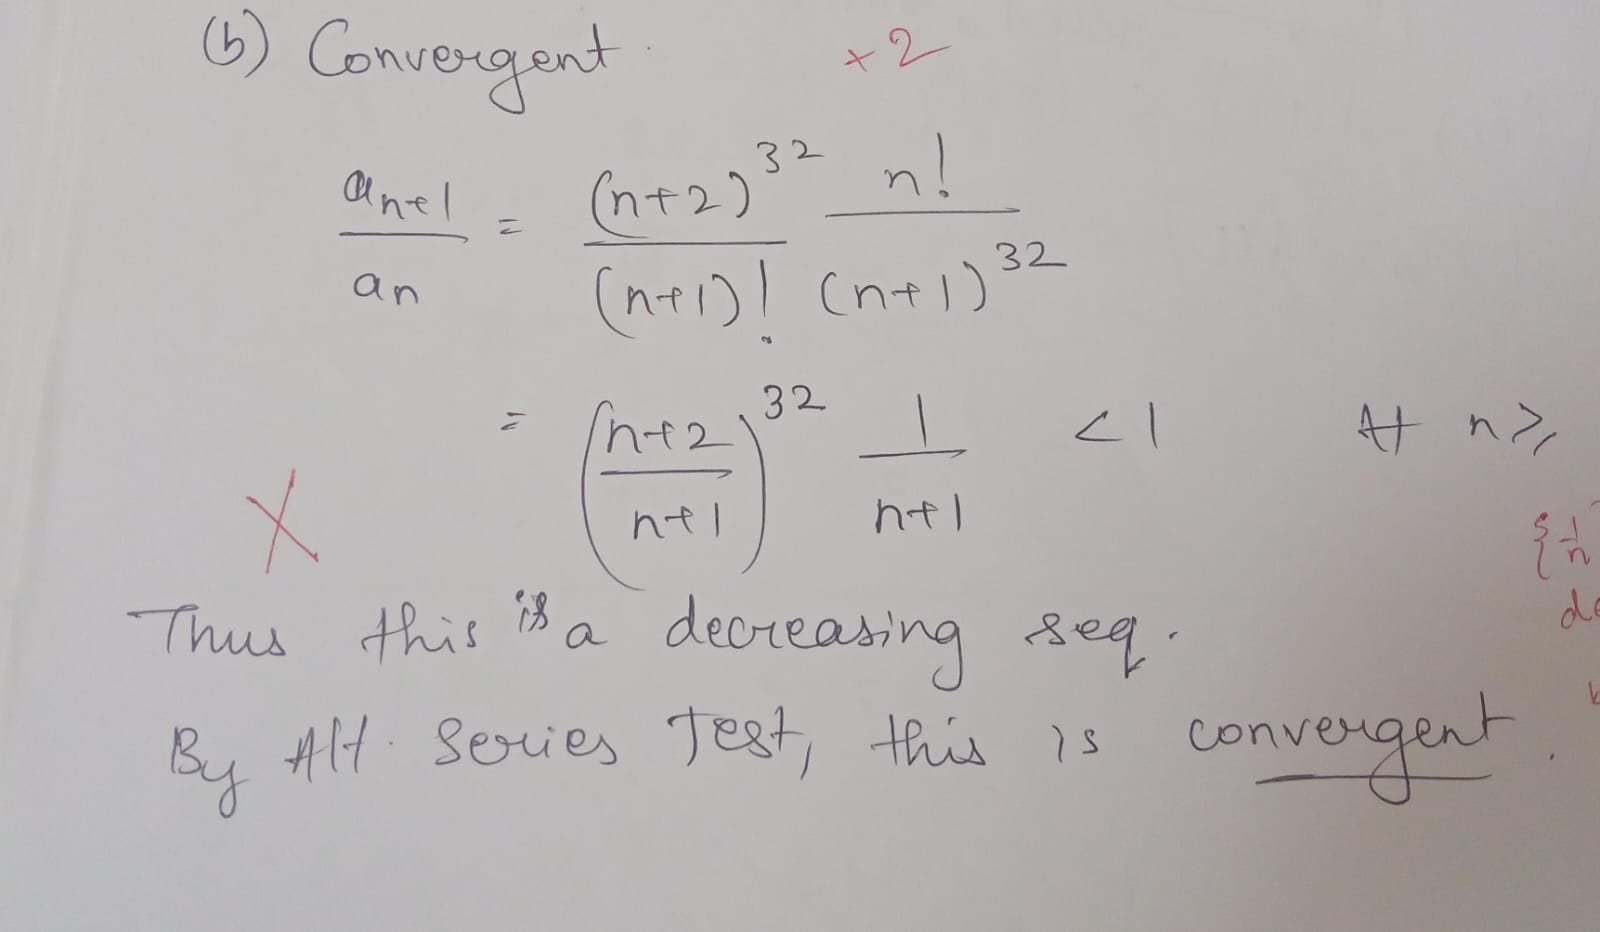 (b) Convergent. +2
a_{n+1}/a_n = (n+2)^32/(n+1)! n!/(n+1)^32
= ((n+2)/(n+1))^32 1/(n+1) < 1 ∀ n ≥
X
{1/n
Thus this is a decreasing seq.
By Alt. Series Test, this is convergent.